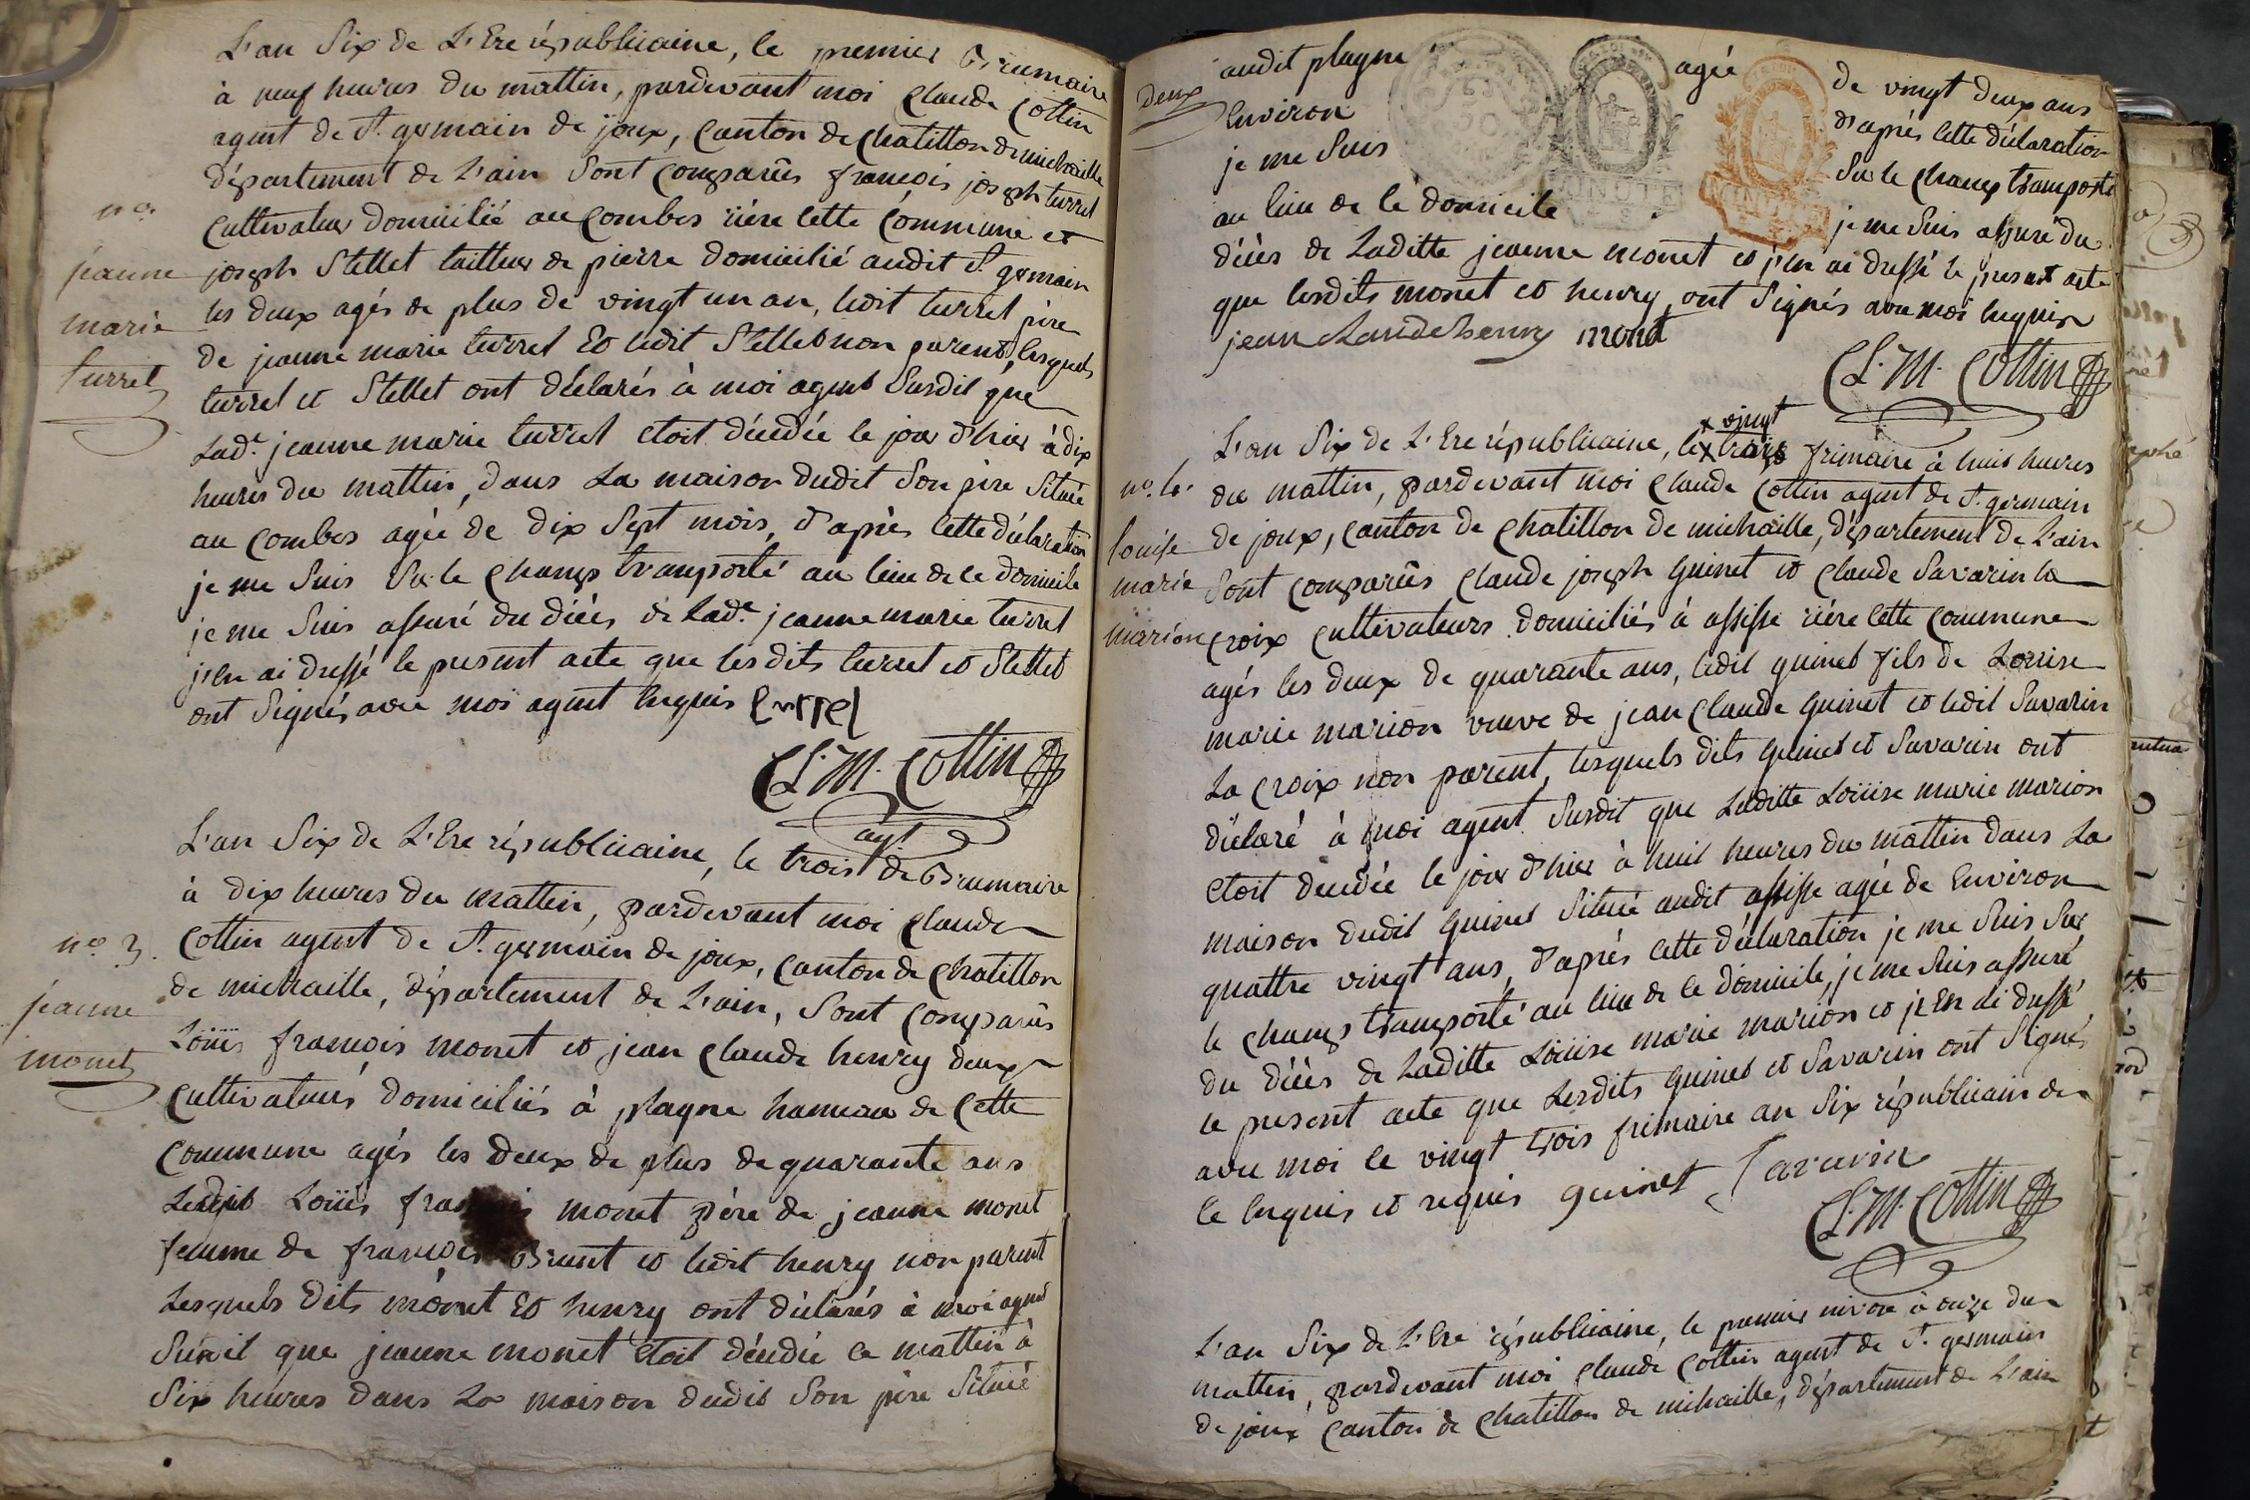 L'an Six de L'Ere républicaine, le premier Brumaire
à neuf heures du mattin, pardevant moi Claude Cottin
agent de St. germain de joux, Canton de Chatillon de michaille
département de L'ain Sont Comparûs françois joseph turrel
Cultivateur domicilié au Combes riére cette Commune et
joseph Stellet tailleur de pierre domicilié audit St. germain
les deux agés de plus de vingt un an, ledit turrel père
de jeanne marie turrel Et ledit Stellet non parent, lesquels
turrel et Stellet ont déclarés à moi agent Susdit que
Lade. jeanne marie turrel etoit décédée le jour d'hier à dix
heures du mattin, dans La maison dudit Son père Située
au Combes agée de dix Sept mois, d'après cette déclaration
je me Suis Sur le Champ transporté au lieu de ce domicile
je me Suis assuré du décès de Lade. jeanne marie turrel
j'en ai dressé le present acte que lesdits turrel et Stellet
ont Signés avec moi agent turrel
no.
jeanne
marie
turrel
Cl. M. Cottin
agt
L'an Six de L'Ere républicaine, le trois de Brumaire
à dix heures du mattin, pardevant moi Claude
Cottin agent de St. germain de joux, Canton de Chatillon
de michaille, département de L'ain, Sont Comparûs
Loüis françois monet et jean Claude henry deux
Cultivateurs domiciliés à plagne hameau de Cette
Commune agés les deux de plus de quarante ans
Ledit Loüis françois monet père de jeanne monet
femme de françois et ledit henry non parent
Lesquels dits monet Et henry ont déclarés à moi agent
Susdit que jeanne monet étoit décédée ce mattin à
Six heures dans La maison dudit Son père Située
no 3.
jeanne
monet
deux
audit plagne agée de vingt deux ans
Environ d'après cette déclaration
je me Suis Sur le Champ transporté
au lieu de ce domicile je me Suis assuré du
décès de Laditte jeanne monet et j'en ai dressé le present acte
que lesdits monet et henry ont Signés avec moi
jean Claude henry monet
Cl. M. Cottin
vingt
L'an Six de L'Ere républicaine, le trois frimaire à huit heures
du mattin, pardevant moi Claude Cottin agent de St. germain
de joux, Canton de Chatillon de michaille, département de L'ain
Sont Comparûs Claude joseph Guinet et Claude Savarin la
Croix Cultivateurs domiciliés à assisse riére cette Commune
agés les deux de quarante ans, ledit guinet fils de Louise
marie marion veuve de jean Claude Guinet et ledit Savarin
La Croix non parent, lesquels dits Guinet et Savarin ont
déclaré à moi agent Susdit que Laditte Loüise marie marion
etoit decedée le jour d'hier à huit heures du mattin dans La
maison dudit Guinet Située audit assisse agée de Environ
quattre vingt ans, d'après cette déclaration je me Suis Sur
le Champ transporté au lieu de ce domicile, je me Suis assuré
du décès de Laditte Loüise marie marion et je En ai dressé
le present acte que Lesdits Guinet et Savarin ont Signés
avec moi le vingt trois frimaire an Six républicain de
ce Enquis et requis guinet Savarin
no. 4.
louise
marie
marion
Cl. M. Cottin
L'an Six de L'Ere républicaine, le premier nivose à onze du
mattin, pardevant moi Claude Cottin agent de St. germain
de joux Canton de Chatillon de mihaille, département de L'ain